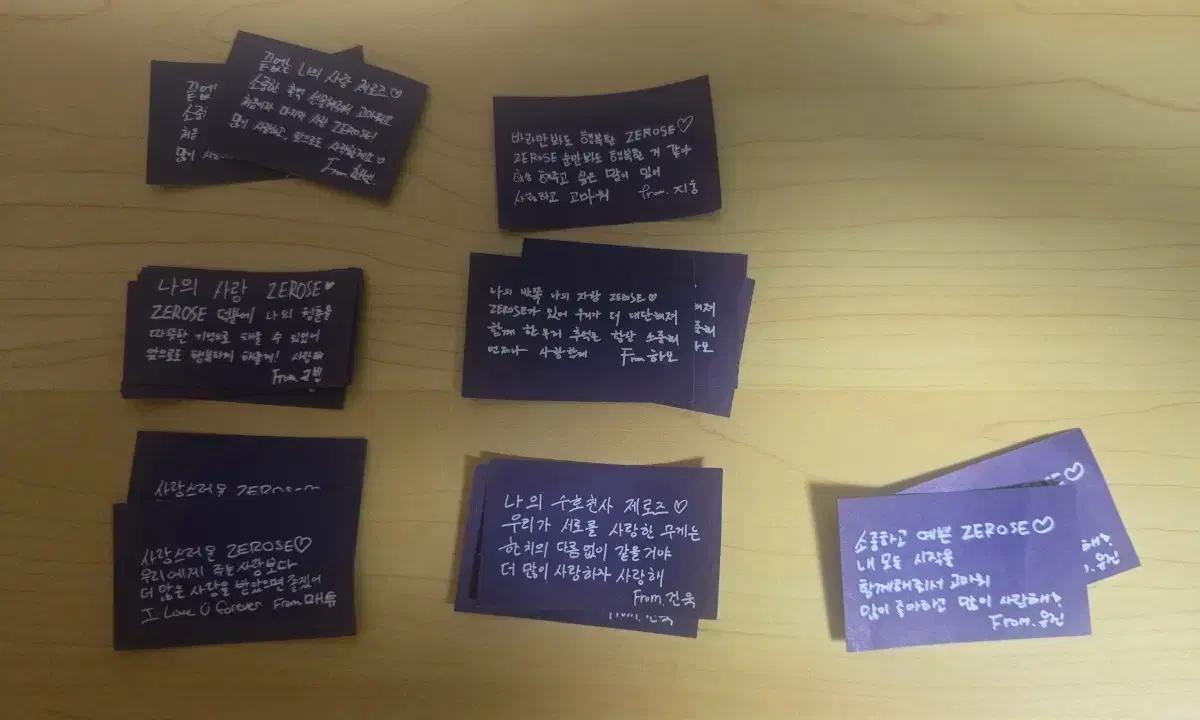 끝없
소중
처음
많이 사
끝없는 나의 사랑 제로즈♡
소중한 추억 선물해줘서 고마워요
처음이자 마지막 사랑 ZEROSE!
많이 사랑하고 앞으로도 사랑할게요♡
From. 한빈
바라만 봐도 행복한 ZEROSE♡
ZEROSE 눈만 봐도 행복한 거 같아
해주고 싶은 말이 있어
사랑하고 고마워 from. 지웅
나의 사랑 ZEROSE♥
ZEROSE 덕분에 나의 청춘을
따뜻한 기억으로 채울 수 있었어
앞으로도 행복하게 해줄게! 사랑해
From. 규빈
나의 반쪽 나의 자랑 ZEROSE♡
ZEROSE가 있어 우리가 더 대단해져
함께 한 우리 추억은 항상 소중해
언제나 사랑합해 From 하오
해져
중해
하오
사랑스러운 ZEROSE
사랑스러운 ZEROSE♡
우리에게 주는 사랑보다
더 많은 사랑을 받았으면 좋겠어
I Love U forever From 매튜
나의 수호천사 제로즈♡
우리가 서로를 사랑한 무게는
한치의 다름없이 같을거야
더 많이 사랑하자 사랑해
From. 건욱
From. 건욱
E♡
해?
. 유진
소중하고 예쁜 ZEROSE♡
내 모든 시작을
함께해줘서 고마워
많이 좋아하고 많이 사랑해?
From. 유진